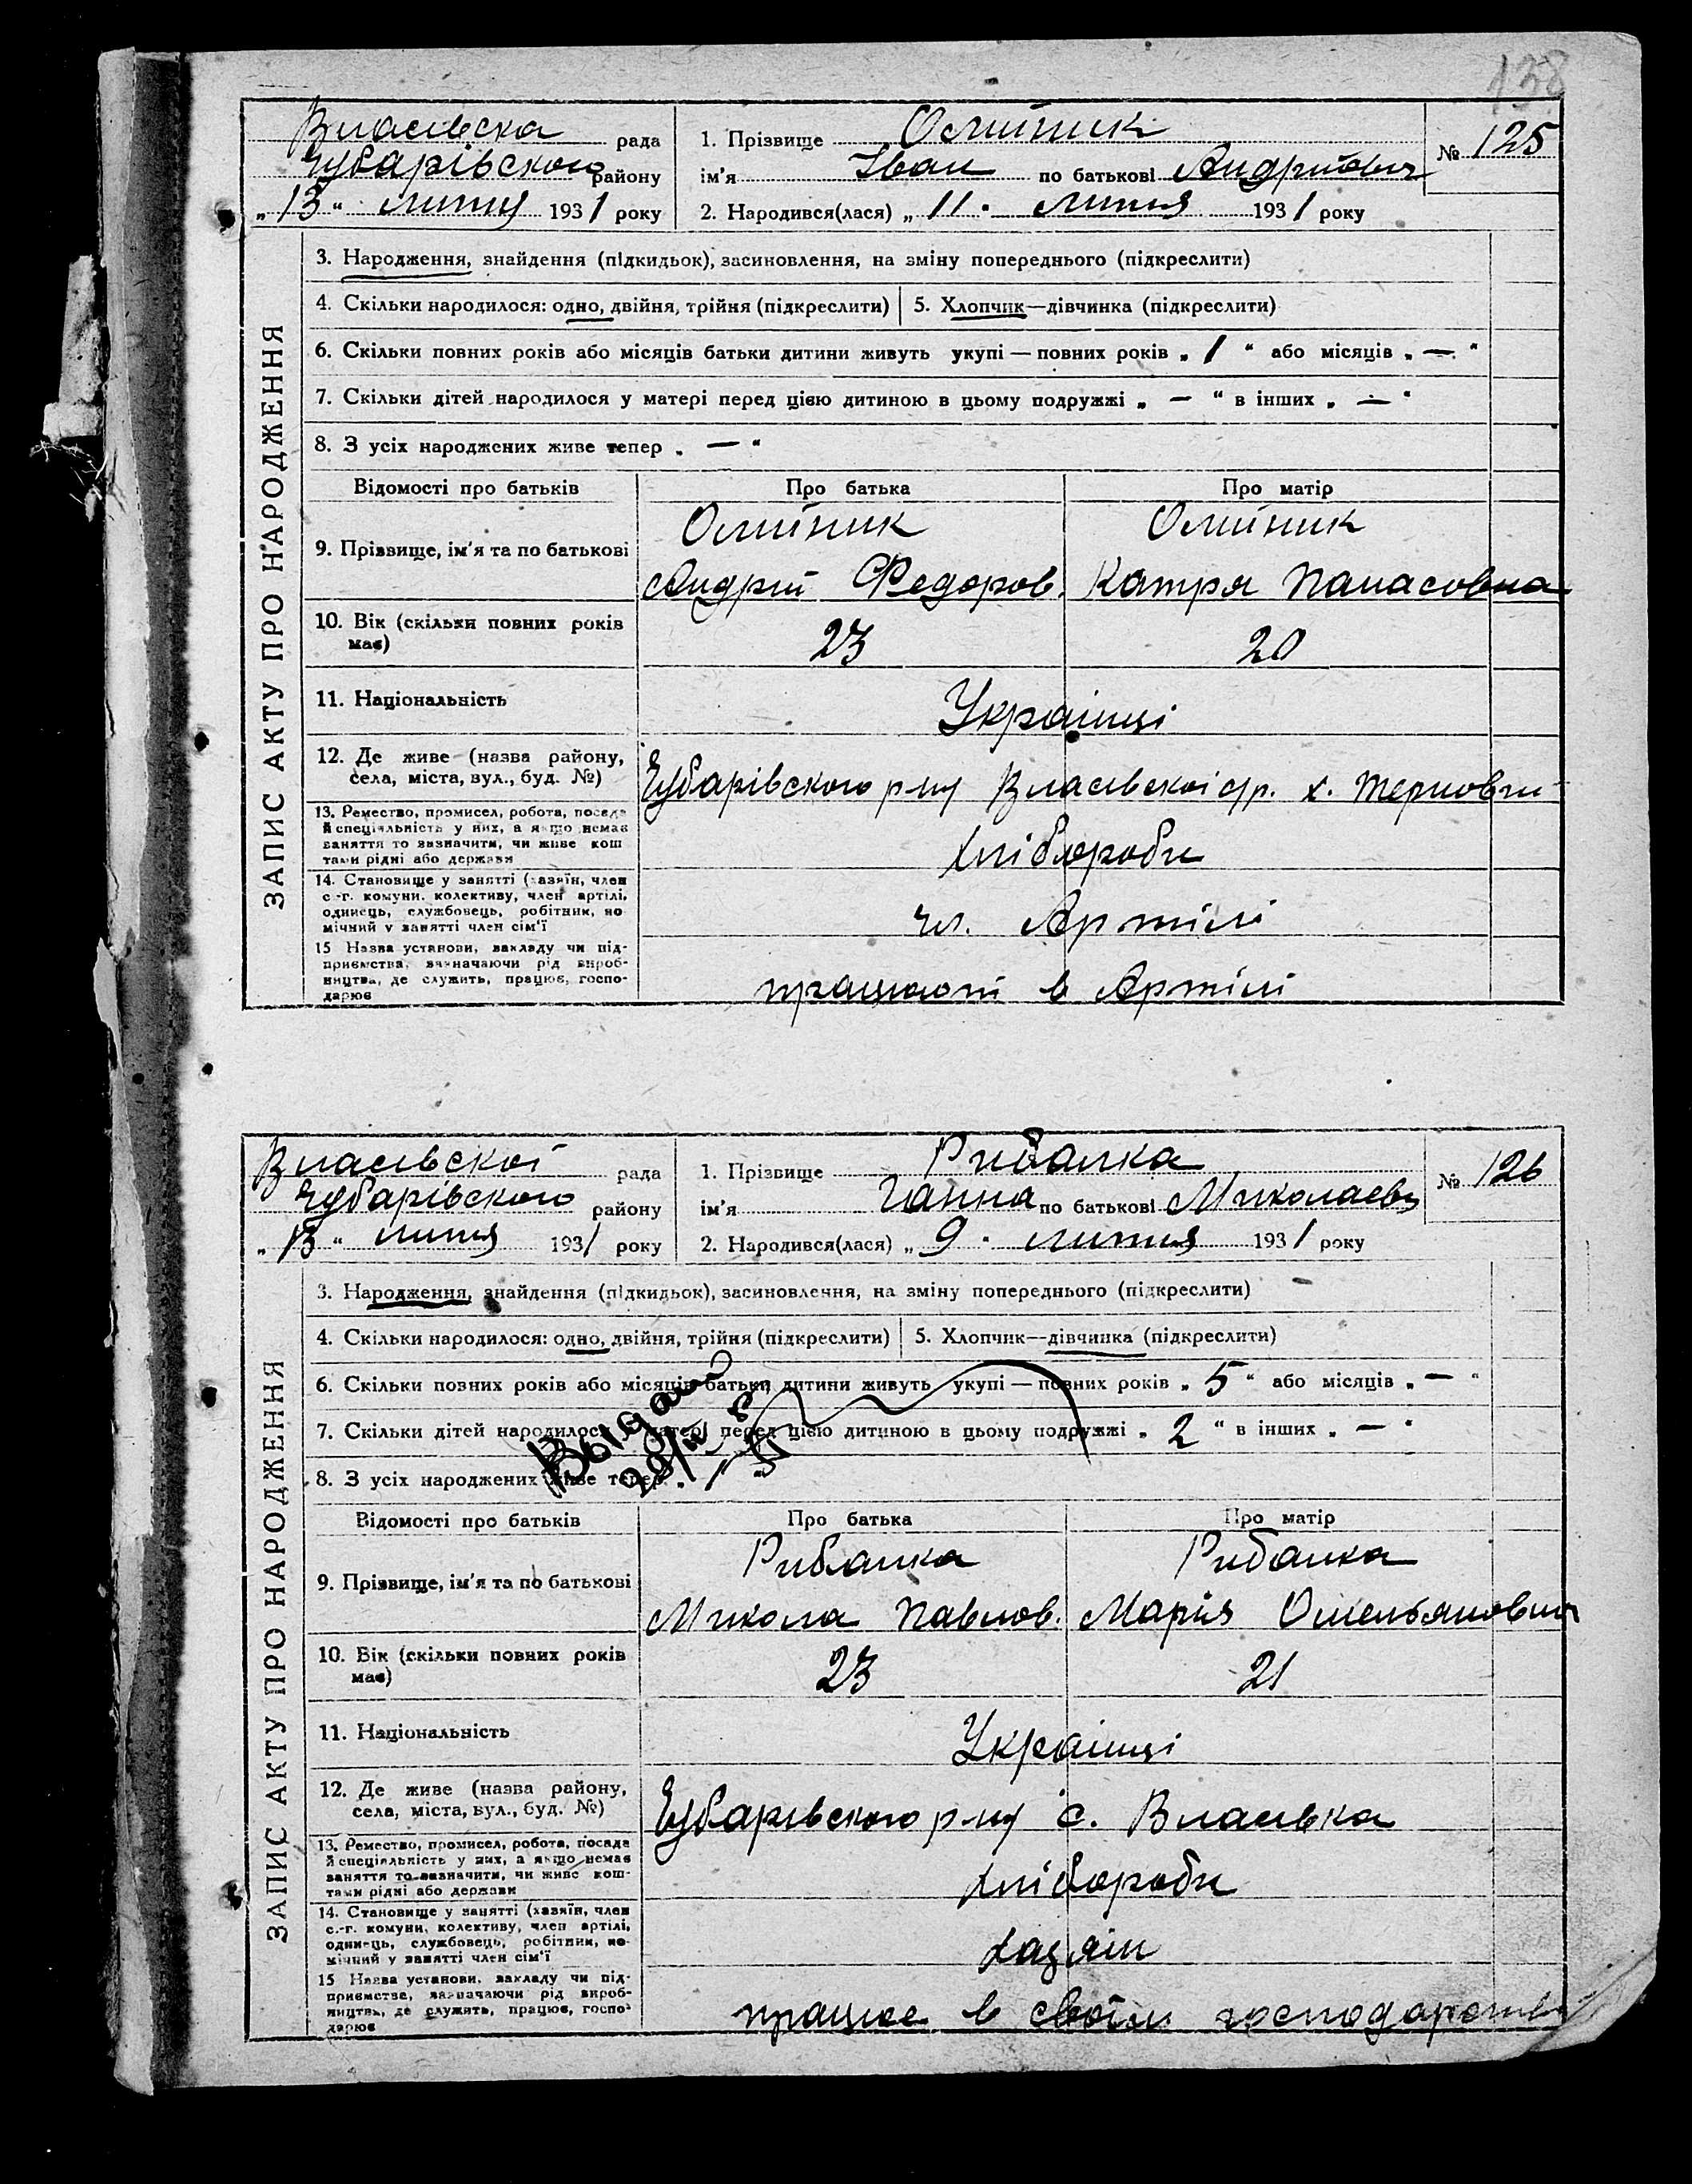 138
Власівска рада
Чубарівского району
„ 13 “ липня 1931 року
1. Прізвище Олійник
ім'я Іван по батькові Андрійович
№ 125
2. Народився(лася) „ 11 . липня 1931 року
ЗАПИС АКТУ ПРО НАРОДЖЕННЯ
3. Народження, знайдення (підкидьок), засиновлення, на зміну попереднього (підкреслити)
4. Скільки народилося: одно, двійня, трійня (підкреслити) 5. Хлопчик—дівчинка (підкреслити)
6. Скільки повних років або місяців батьки дитини живуть укупі — повних років „ 1 “ або місяців „ — “
7. Скільки дітей народилося у матері перед цією дитиною в цьому подружжі „ — “ в інших „ — “
8. З усіх народжених живе тепер „ — “
Відомості про батьків Про батька Про матір
9. Прізвище, ім'я та по батькові
Олійник Олійник
Андрій Федоров. Катря Панасовна
10. Вік (скільки повних років
має)
23 20
11. Національність
Українці
12. Де живе (назва району,
села, міста, вул., буд. №)
Чубарівского р-ну Власівскої с/р. х. Терновий
13. Ремество, промисел, робота, посада
й спеціяльність у них, а якщо немає
заняття то зазначити, чи живе кош
тами рідні або держави
хлібороби
14. Становище у занятті (хазяїн, член
с.-г. комуни, колективу, член артілі,
одинець, службовець, робітник, по
мічний у занятті член сім'ї
чл. Артілі
15 Назва установи, закладу чи під-
приємства, зазначаючи рід вироб-
ництва, де служить, працює, госпо-
дарює
працюют в Артілі
Власівскої рада
Чубарівского району
„ 13 “ липня 1931 року
1. Прізвище Рибалка
ім'я Ганна по батькові Миколаевн
№ 126
2. Народився(лася) „ 9 . липня 1931 року
ЗАПИС АКТУ ПРО НАРОДЖЕННЯ
3. Народження, знайдення (підкидьок), засиновлення, на зміну попереднього (підкреслити)
4. Скільки народилося: одно, двійня, трійня (підкреслити) 5. Хлопчик—дівчинка (підкреслити)
6. Скільки повних років або місяців батьки дитини живуть укупі — повних років „ 5 “ або місяців „ — “
7. Скільки дітей народилося у матері перед цією дитиною в цьому подружжі „ 2 “ в інших „ — “
8. З усіх народжених живе тепер „ 1 “
Відомості про батьків Про батька Про матір
9. Прізвище, ім'я та по батькові
Рибалка Рибалка
Микола Павлов. Марія Омельяновна
10. Вік (скільки повних років
має)
23 21
11. Національність
Українці
12. Де живе (назва району,
села, міста, вул., буд. №)
Чубарівского р-ну с. Власівка
13. Ремество, промисел, робота, посада
й спеціяльність у них, а якщо немає
заняття то зазначити, чи живе кош-
тами рідні або держави
хлібороби
14. Становище у занятті (хазяїн, член
с.-г. комуни, колективу, член артілі,
одинець, службовець, робітник, по-
мічний у занятті член сім'ї
хазяін
15 Назва установи, закладу чи під-
приємства, зазначаючи рід вироб-
ництва, де служить, працює, госпо-
дарює
працює в своїм господарстві